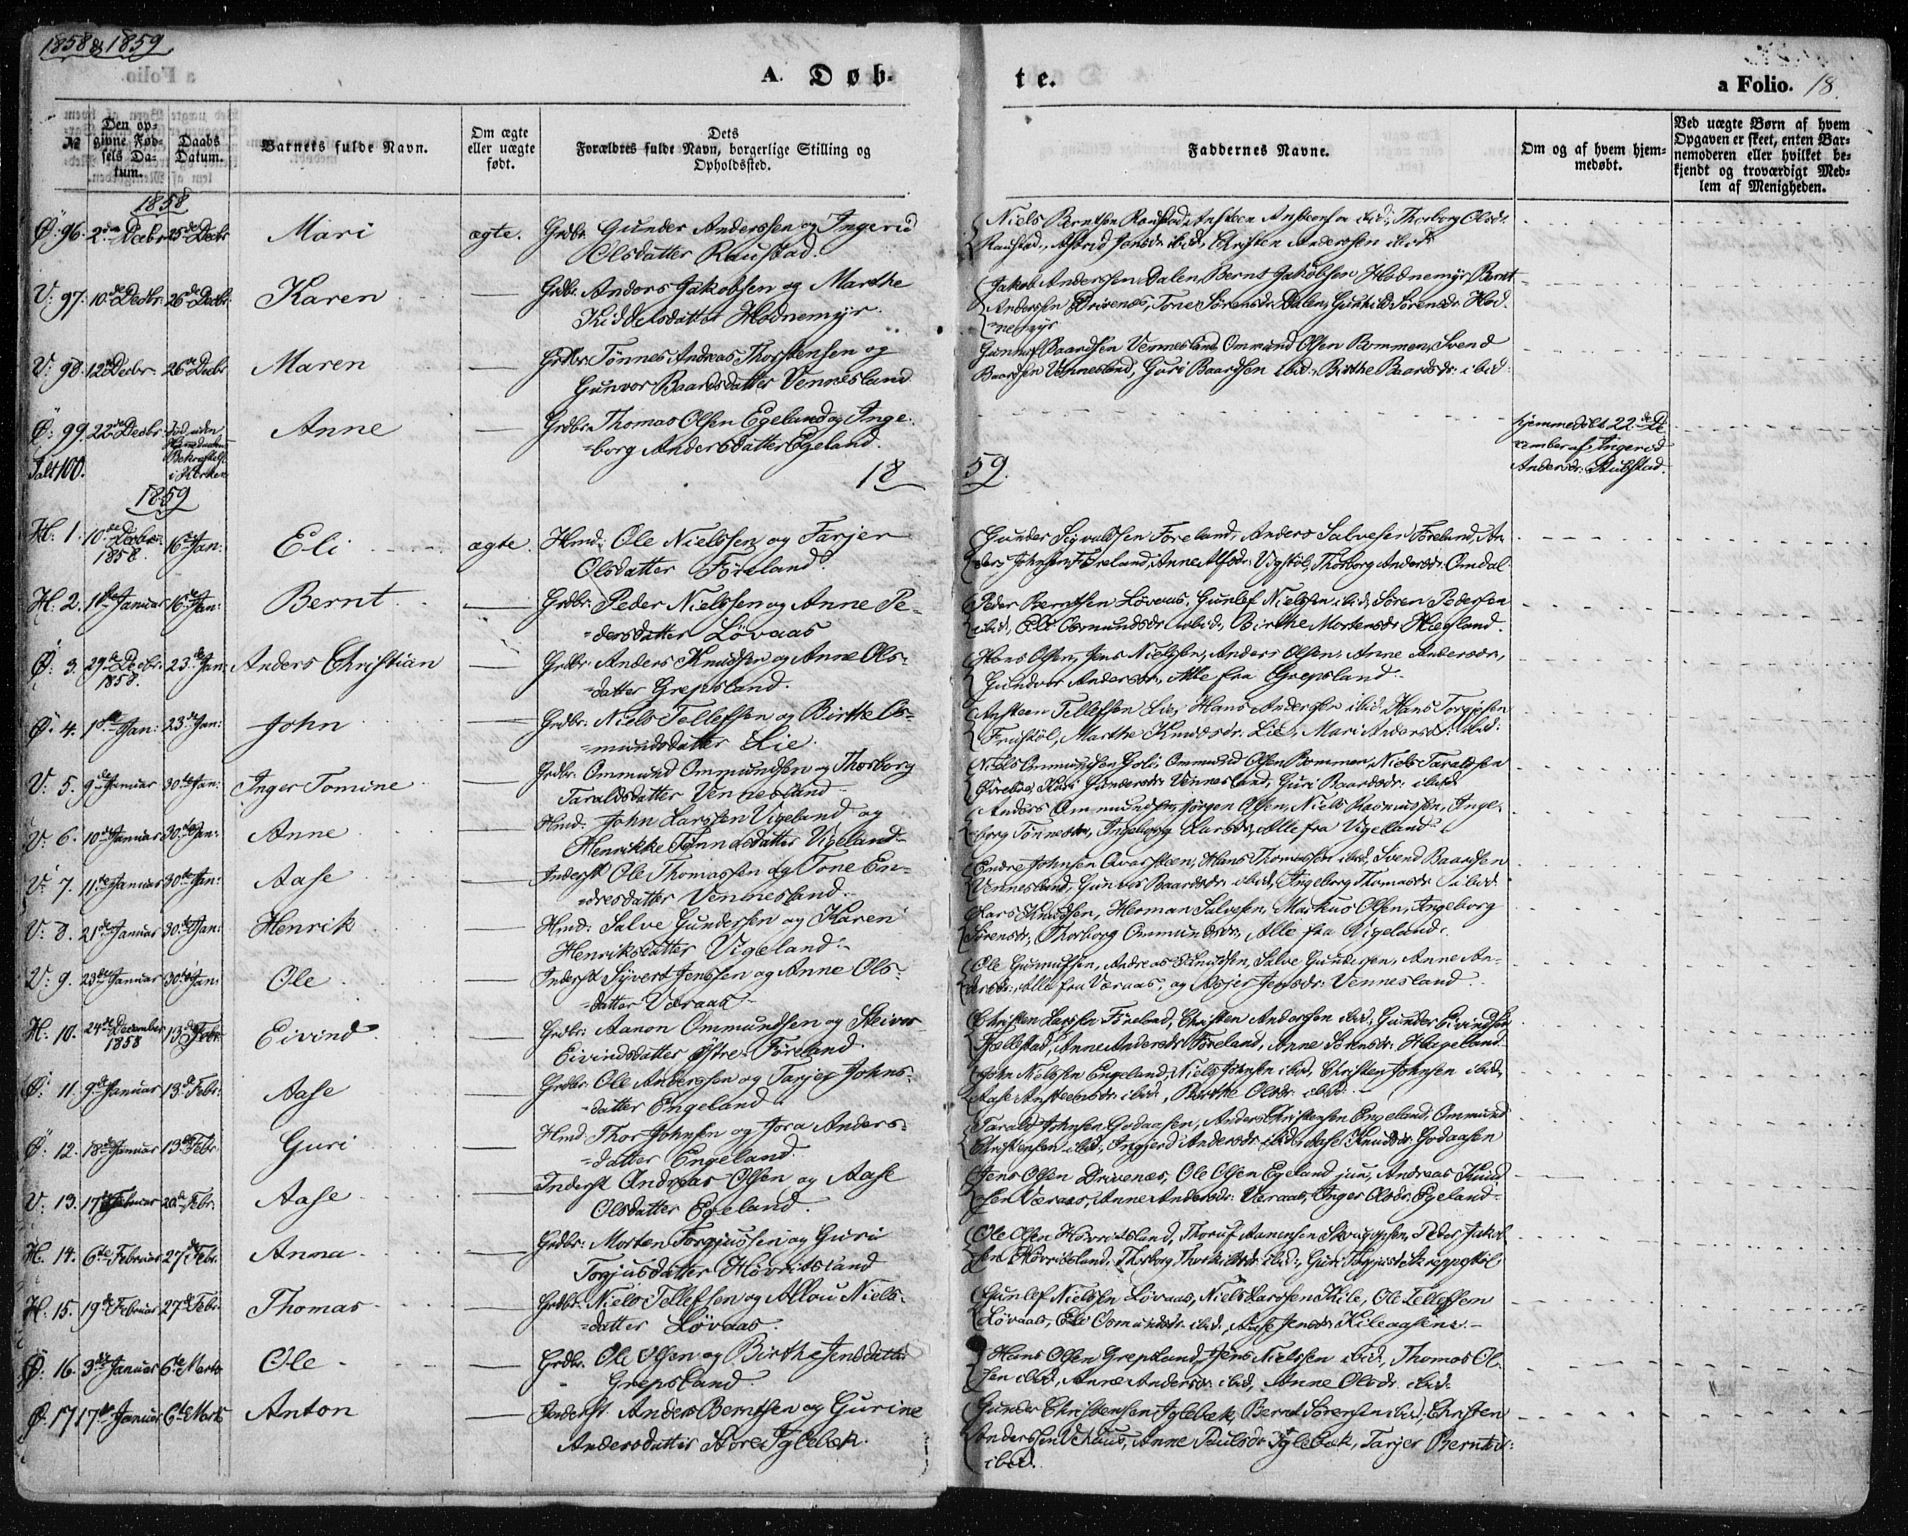 1858 & 1859
A. Døb-
te.
a Folio. 18.
№
Den opgivne Fødsels Datum.
Daabs Datum.
Barnets fulde Navn.
Om ægte eller uægte født.
Dets Forældres fulde Navn, borgerlige Stilling og Opholdssted.
Faddernes Navne.
Om og af hvem hjemmedøbt.
Ved uægte Børn af hvem Opgaven er skeet, enten Barnemoderen eller hvilket bekjendt og troværdigt Medlem af Menigheden.
1858
Ø: 96. 2den Decbr 25de Decbr Mari ægte. Grdbr. Gunder Anderssen og Ingerid
Olsdatter Raustad.
Niels Berntsen Raustad, Ansteen Ansteensen ibid., Thorborg Olsdr
Raustad, Astrid Jensdr ibid, Christen Anderssen ibid:
V: 97. 10de Decbr. 26de Decbr. Karen — Grdbr. Anders Jakobsen og Marthe
Kiddelsdatter Hodnemyr.
Jakob Anderssen Dalen, Bernt Jakobsen Hodnemyr, Bernt
Andersen Drivenes, Tone Sørensdr Dalen, Gunhild Sørensdr Hod-
nemyr
V: 98. 12te Decbr. 26de Decbr. Maren — Grdbr: Tønnes Andreas Thorstensen og
Gunvor Baardsdatter Vennesland.
Gunnuf Baardsen Vennesland, Ommund Olsen Rommen, Svend
Baardsen Vennesland, Guri Baardsen ibid, Birthe Baardsdr ibid:
Ø: 99. 22de Decbr. Anne Grdbr: Thomas Olsen Egeland og Inge-
borg Andersdatter Egeland.
Hjemmedøbt 22de De-
cember af Ingerid
Andersdr.
Ialt 100.
i Kirken
1859
1859.
H. 1. 10de Decbr. 1858. 16de Jan: Eli ægte. Hmd: Ole Nielssen og Tarjer
Olsdatter Føreland
Gunder Sigvaldsen Føreland, Anders Salvesen Føreland, An-
ders Johnsen Føreland, Anne Alfsdr Vigstøl, Thorborg Andersdr Omdal
H. 2. 1ste Januar 16de Jan: Bernt — Grdbr: Peder Nielssen og Anne Pe-
dersdatter Løvaas
Peder Berntsen Løvaas, Gunlef Nielssen ibid, Søren Pedersen
ibid, Eli Osmundsdr ibid, Birthe Mortensdr Hægland.
Ø: 3. 29de Decbr. 1858. 23de Jan: Anders Christian — Grdbr: Anders Knudsen og Anne Ols-
datter Grepsland.
Hans Olsen, Jens Nielssen, Anders Olsen, Anne Andersdr,
Gundvor Andersdr, Alle fra Grepsland.
Ø: 4. 1ste Jan: 23de Jan: John — Grdbr: Niels Tellefsen og Birthe Os-
mundsdatter Lie.
Ansteen Tellefsen Lie, Hans Anderssen ibid, Hans Torgjusen
Frustøl, Marthe Knudsdr. Lie, Mari Andersdr. ibid:
V: 5. 9de Januar 30te Jan: Inger Tomine — Grdbr: Ommund Ommundsen og Thorborg
Taraldsdatter Vennesland
Niels Ommundsen Goli, Ommund Olsen Rommen, Niels Taraldsen
Kari Gundersdr Vennesland, Guri Baardsdr: ibid
V: 6. 10de Januar 30te Jan: Anne — Hmd: John Larssen Vigeland og
Henrikke Tønnesdatter Vigeland.
Anders Ommundsen, Jørgen Olsen, Niels Rasmussen, Inge-
borg Tønnesdr, Ingeborg Larsdr, Alle fra Vigeland.
V: 7. 11te Januar 30te Jan: Aase — Inderst Ole Thomassen og Tone En-
dresdatter Vennesland.
Endre Johnsen Qvarsteen, Hans Thomassen ibid, Svend Baardsen
Vennesland, Gunvor Baardsdr ibid, Ingeborg Thomasdr ibid.
V: 8. 21de Januar 30te Jan: Henrik — Hmd: Salve Gunderssen og Karen
Henriksdatter Vigeland.
Lars Knudsen, Herman Salvesen, Markus Olsen, Ingeborg
Sørensdr, Thorborg Ommundsdr, Alle fra Vigeland.
V: 9. 23de Januar 30te Jan: Ole — Inderst Syvert Jenssen og Anne Ols-
datter Væraas
Ole Gunnufsen, Andreas Knudsen, Salve Gundersen, Anne An-
dersdr, Alle fra Væraas, og Asjer Jensdr Vennesland.
H. 10. 24de December 1858 13de Febr: Eivind — Grdbr: Aanon Ommundsen og Steinvor
Eivindsdatter Østre-Føreland.
Christen Larssen Føreland, Christen Anderssen ibid, Gunder Eivindsen
Fjellestad, Anne Andersdr Føreland, Anne Sørensdr Hægeland
Ø: 11. 9de Januar 13de Febr: Aase — Grdbr: Ole Anderssen og Tarjer Johns-
datter Engeland
John Nielssen Engeland, Niels Johnsen ibid, Christen Johnsen ibid,
Aase Ansteensdr ibid, Birthe Olsdr ibid.
Ø: 12. 18de Januar 13de Febr: Guri — Hmd: Thor Johnsen og Jora Anders-
datter Engeland.
Tarald Johnsen Godaasen, Anders Christensen Engeland, Ommund
Christensen ibid, Ingjerd Andersdr ibid, Aase Knudsdr. Godaasen
V: 13. 17de Januar 20de Febr: Aase — Inderst Andreas Olsen og Aase
Olsdatter Egeland.
Jens Olsen Drivenes, Ole Olsen Egeland jun, Andreas Knud-
sen Væraas, Anne Andersdr: Væraas, Inger Olsdr: Egeland.
H. 14. 6te Februar 27de Febr. Anna — Grdbr: Morten Torgjussen og Guri
Torjusdatter Hovritsland
Ole Olsen Hovritsland, Thoruf Aanensen Peder Jakob-
sen Hovritsland, Thorborg ibid, Guri Torjusdr
H. 15. 19de Februar 27de Febr. Thomas — Grdbr: Niels Tellefsen og Allou Niels-
datter Løvaas.
Gunlef Nielssen Løvaas, Niels Larssen Kile, Ole Tellefsen
Løvaas, Eli Osmundsdr ibid, Aase Jensdr Kileaasene.
Ø: 16. 3die Januar 6te Marts Ole — Grdbr. Ole Olsen og Birthe Jensdatter
Grepsland
Hans Olsen Grepsland, Jens Nielssen ibid, Thomas Ol-
sen ibid, Anne Andersdr ibid, Anne Olsdr ibid.
Ø: 17. 17de Januar 6te Marts Anton — Inderst Anders Berntsen og Gurine
Andersdatter Store Iglebæk.
Gunder Christensen Iglebæk, Bernt Sørensen ibid, Christen
Anderssen Vehuus, Anne Paulsdr Iglebæk, Tarjer Berntsdr
ibid.